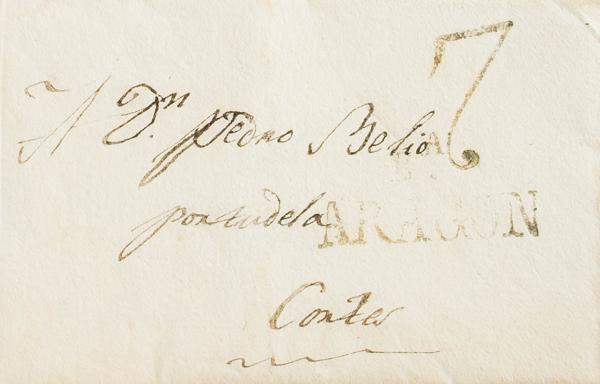 7
A Dn. Pedro Belio
portudela
ARAGON
Cortes